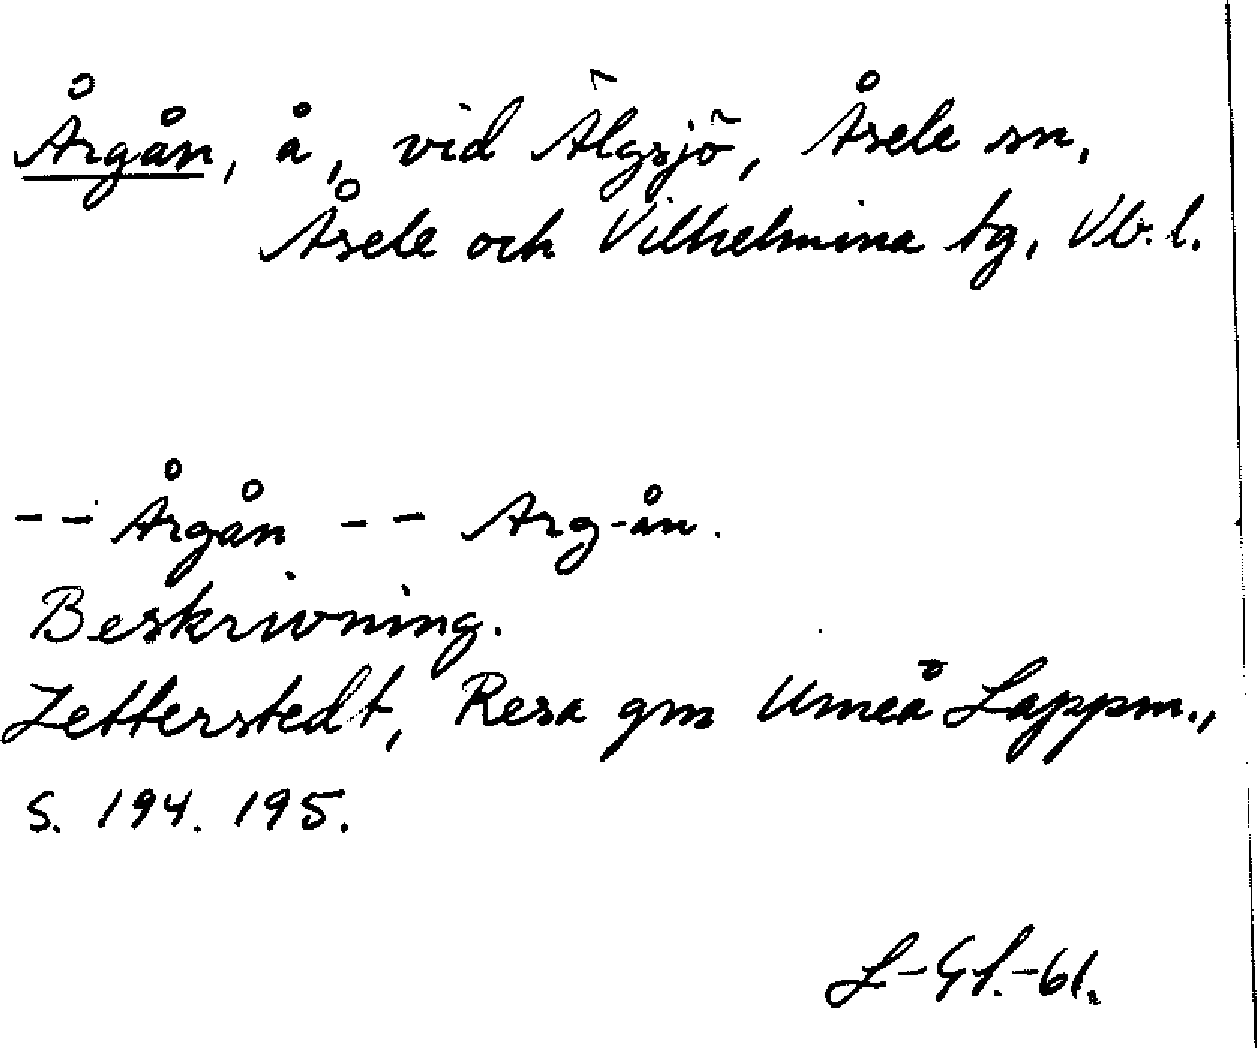 Årgån, å, vid Älgsjö, Åsele sn,
Åsele och Vilhelmina tg, Vb. l.
-- Årgån -- Arg-ån.
Beskrivning.
Zetterstedt, Resa gm Umeå Lappm.,
S. 194. 195.
L-Gl.-61.